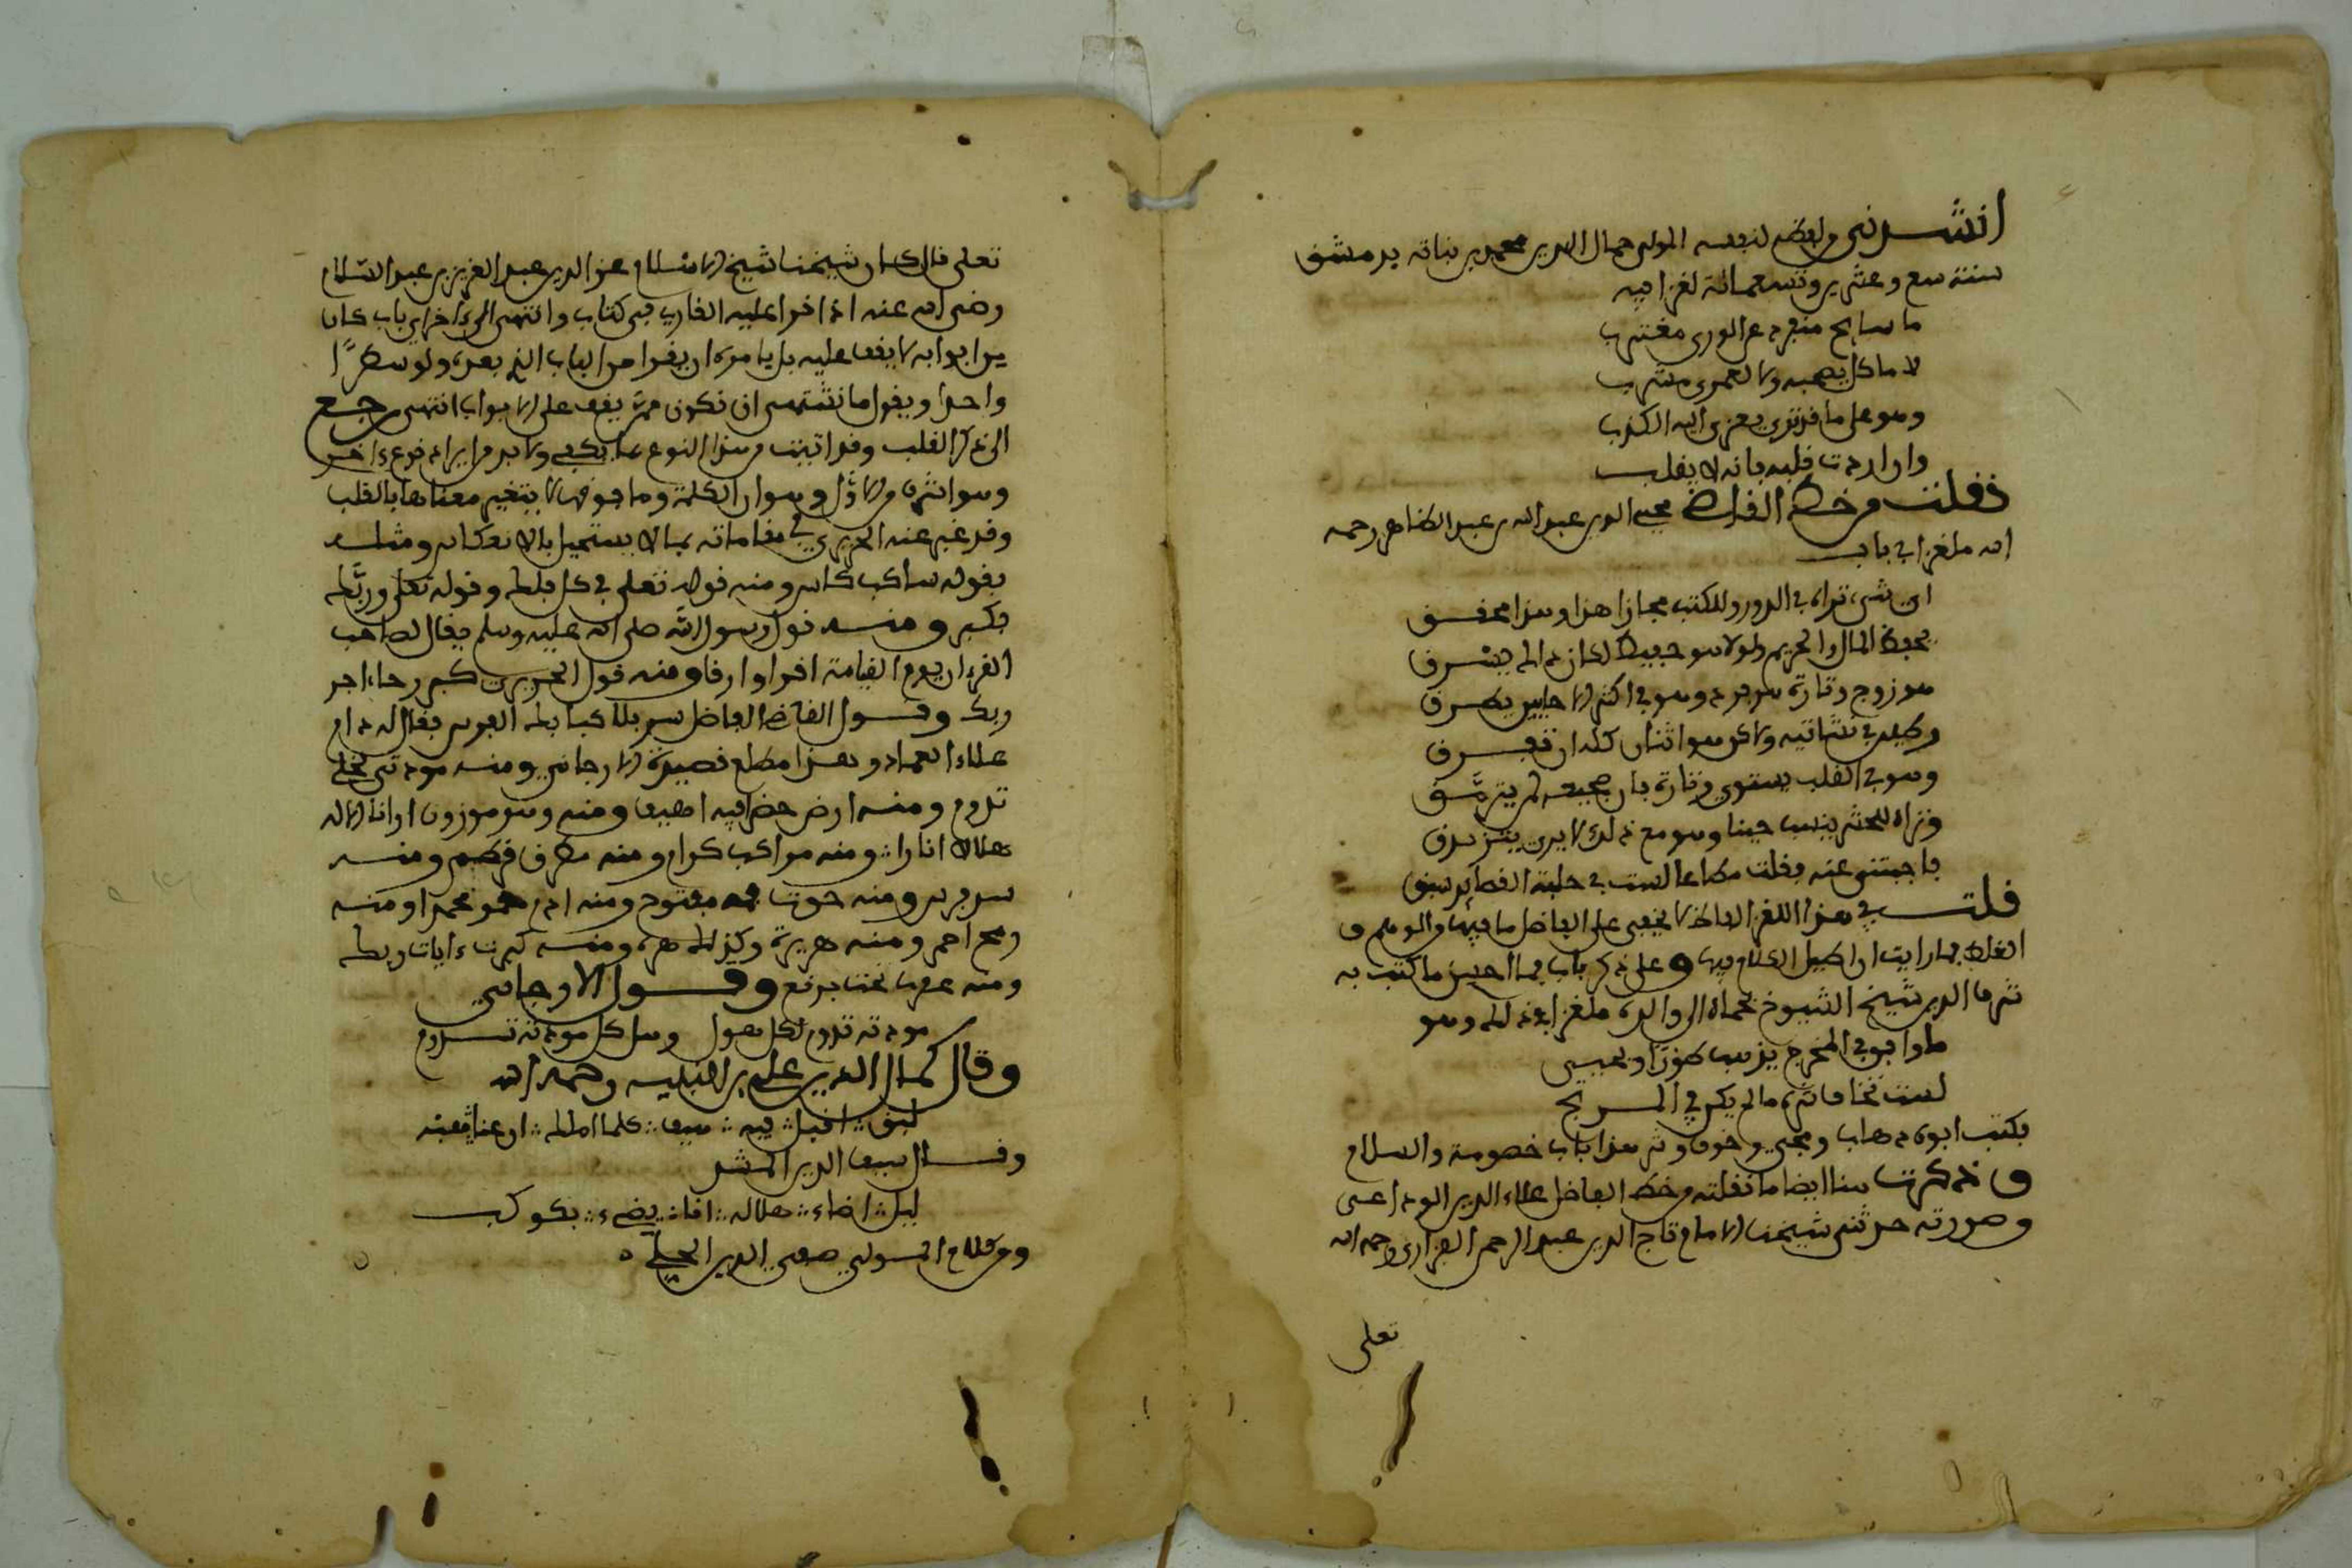 انشدني من لفظه لنفسه المولى جمال الدين محمد بن نباتة بدمشق
سنة سبع وعشرين وتسعمائة لغزا فيه
ما سابح منفرد عن الورى مغترب
لا ماكل يصحبه ولا لعمرى مشرب
وهو على ما قد ترى يعزى اليه الكذب
وان اردت قلبه بانه لا يقلب
نقلت من خط القاضي محيي الدين عبد الله بن عبد الظاهر رحمه
الله ملغزا في باب
اي شيء تراه في الدور والكتب مجازا هذا وهذا محقق
يحفظ المال والحريم ولولا هو حفيظ لكان ذا لم يسرق
هو زوج وتارة هو فرد وهو في اكثر الاحايين يطرق
وكليم في نشاتيه ولاكن هو اثنان كله ان تفرق
وهو في القلب يستوي وتارة بان تصحيفه لم يترمق
وتراه للحشر ينسب حينا وهو مع ذلك لا يرى يتزندق
فاجبني عنه فقلت مطاعا لست في حلبة الفضائل تسبق
قلت في هذا اللغز الفاظ لا يخفى على الفاضل ما فيها والوهم و
الغلط فما رايت ان اطيل الكلام فيها وعلى ذكر باب فما احسن ما كتب به
شرف الدين شيخ الشيوخ بحماة الى والده ملغزا في ذلك وهو
ما واقف في المخرج يذهب طورا ويجي
لست تخاف شره ما لم يكن في المرتج
فكتب ابوه ذهاب ومجي وخوف وشر هذا باب خصومة والسلام
وذكرت هنا ايضا ما نقلته من خط الفاضل علاء الدين الوداعي
وصورته حدثني شيخنا الامام تاج الدين عبد الرحمن الفزاري رحمه الله
تعلى
تعلى قال كان شيخنا شيخ الاسلام عز الدين عبد العزيز بن عبد السلام
رضي الله عنه اذا قرا عليه القارئ في كتاب وانتهى الى ءاخر اي باب كان
من ابوابه لا يقف عليه بل يامره ان يقرا من الباب الذي بعده ولو سطرًا
واحدا ويقول ما نشتهي ان نكون ممن يقف على الابواب انتهى رجع
الى ذكر القلب وقد اتيت من هذا النوع بما يكفي ولا بد من ايراد نوع ءاخر
وهو اشرف من الاول وهو ان الكلمة وما فوقها لا يتغير معناها بالقلب
وقد عبر عنه الحريري في مقاماته بما لا يستحيل بالانعكاس ومثله
بقوله ساكب كاس ومنه قوله تعلى في كل فلك وقوله تعلى وربَّك
فكبر ومنه قول رسول الله صلى الله عليه وسلم يقال لصاحب
القرءان يوم القيامة اقرا وارقا ومنه قول الحريري كبر رجاء اجر
ربك وقول القاضي الفاضل سر فلا كبا بك الفرس فقال له دام
علاء العماد وهذا مطلع قصيدة الارجاني ومنه مودتي لخلي
تدوم ومنه ارض خضرا فيه اهيف ومنه وهو موزون ارانا الاله
هلالا انارا ومنه مراكب كرام ومنه
سر بربر ومنه حوت فمه مفتوح ومنه
رمح احمر ومنه كبرت ءايات ربك
ومنه عقرب تحت برقع وقول الارجاني
مودته تدوم لكل هول وهل كل مودته تدوم
وقال كمال الدين علي بن النبيه رحمه الله
لبق اقبل فيه هيف كلما املك ان غنا هبه
وقال سيف الدين المشد
ليل اضاء هلاله انى يضيء بكوكب
ومن كلام المولى صفي الدين الحلي